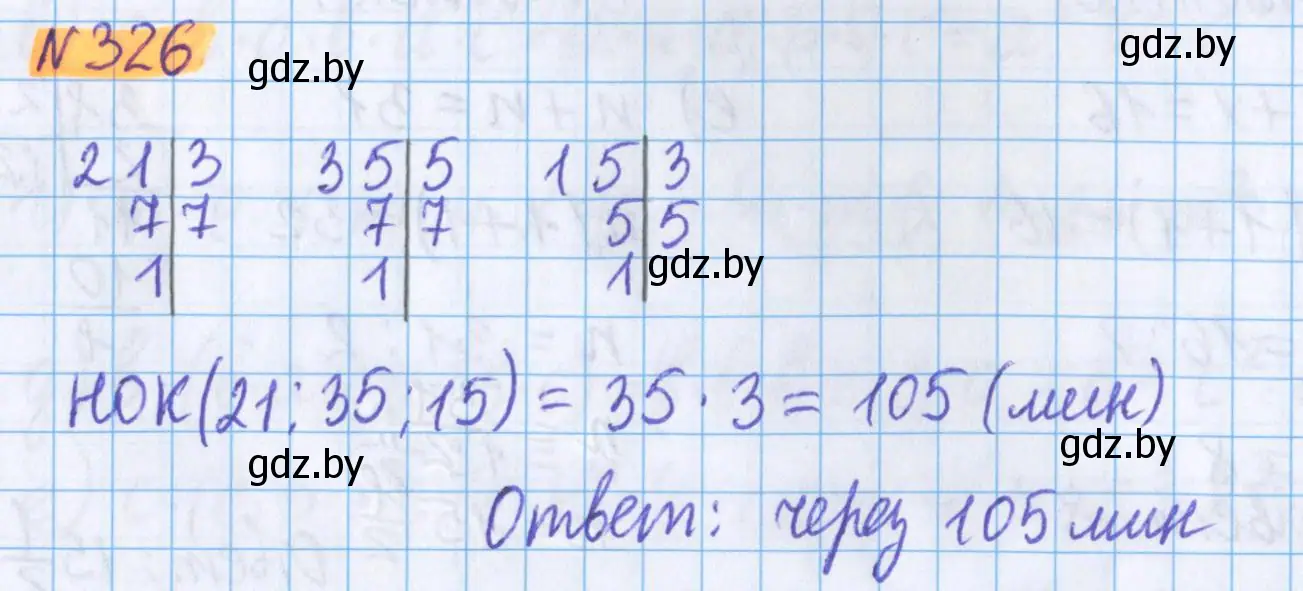 N 326
gdz.by
gdz.by
21 | 3 35 | 5 15 | 3
7 | 7 7 | 7 5 | 5
1 | 1 | 1 |
gdz.by
НОК(21; 35; 15) = 35 · 3 = 105 (мин)
gdz.by
gdz.by
Ответ: через 105 мин